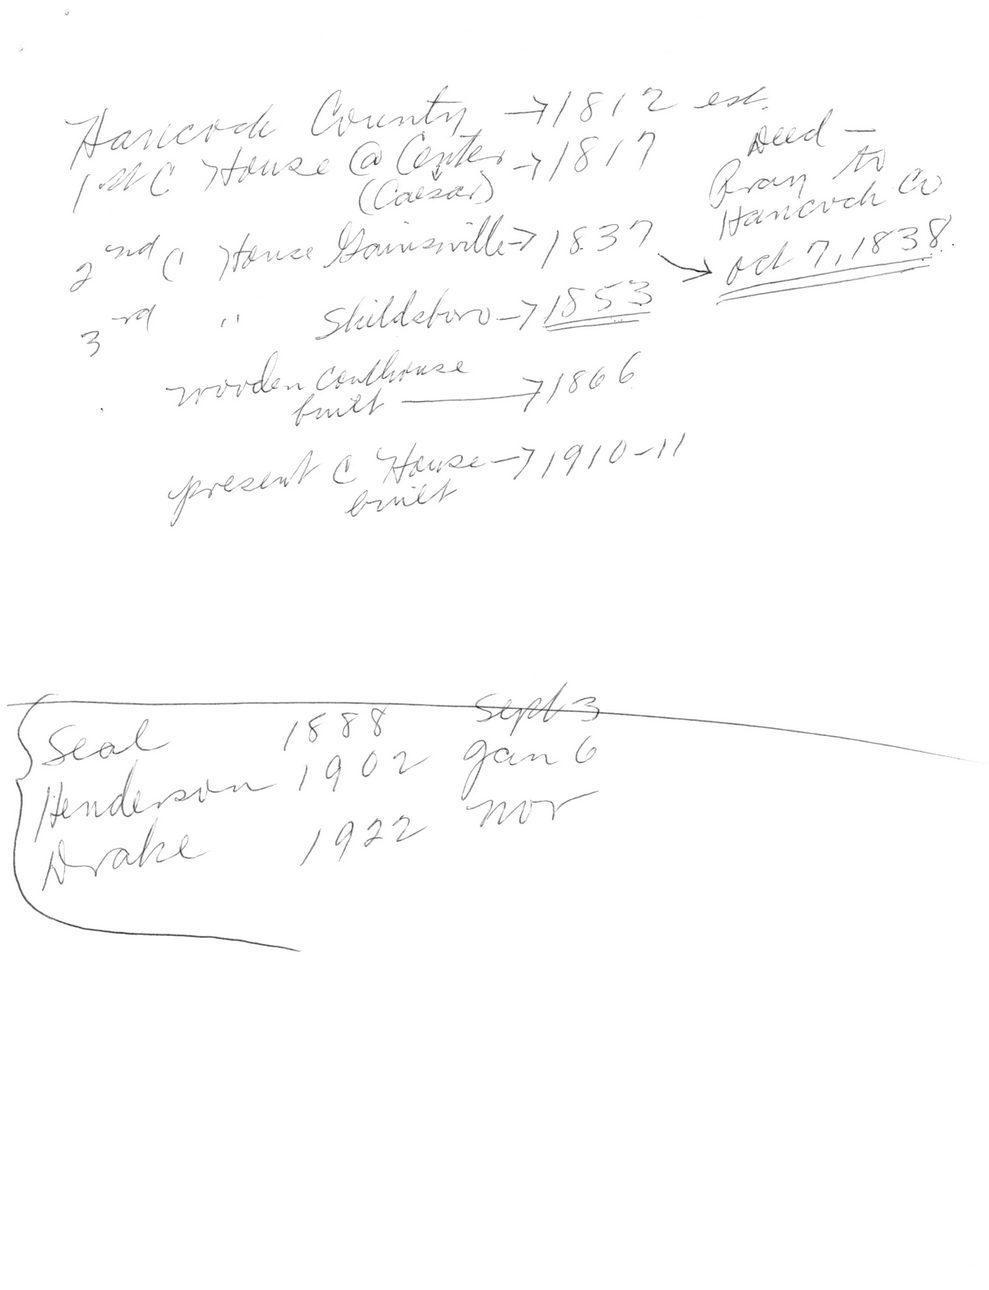 Hancock County → 1812 est.
1st C House @ Center → 1817
(Caesar)
2nd C House Gainsville → 1837
3rd " Shildsboro → 1853
wooden courthouse
built → 1866
present C House → 1910-11
built
Deed —
Pray to
Hancock Co
Oct 7, 1838.
Seal 1888 Sept 3
Henderson 1902 Jan 6
Drake 1922 Nov